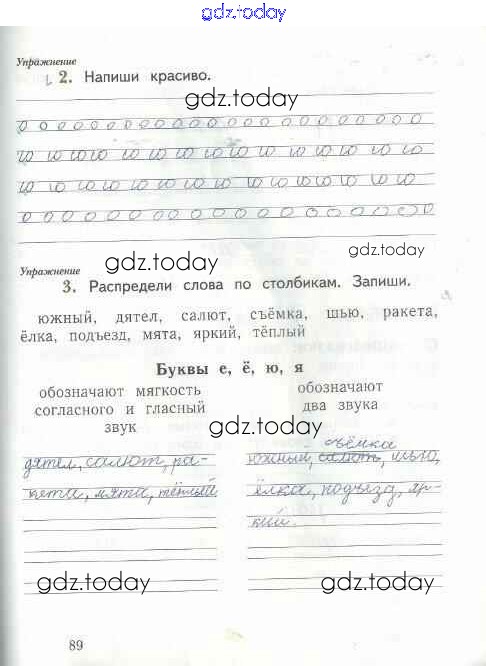 gdz.today
Упражнение
2. Напиши красиво.
gdz.today
о о о о о о о о о о о о о о о о о о о о о о о
ю ю ю ю ю ю ю ю ю ю ю ю ю ю ю ю
ю ю ю ю ю ю ю ю ю ю ю ю ю ю ю ю
о о о о о о о о о о о о о о о о о о о о о о
gdz.today
gdz.today
Упражнение
3. Распредели слова по столбикам. Запиши.
южный, дятел, салют, съёмка, шью, ракета,
ёлка, подъезд, мята, яркий, тёплый
Буквы е, ё, ю, я
обозначают мягкость
согласного и гласный
звук
обозначают
два звука
gdz.today
дятел, салют, ра-
кета, мята, тёплый
съёмка
южный, салют, шью,
ёлка, подъезд, яр-
кий.
gdz.today
gdz.today
89